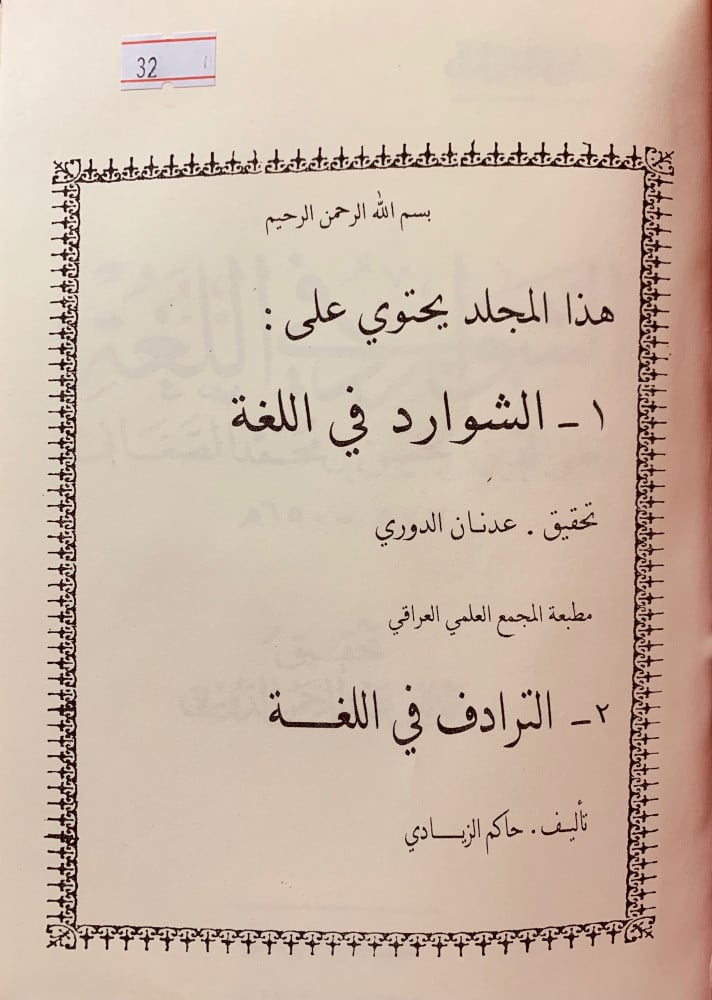 32
بسم الله الرحمن الرحيم
هذا المجلد يحتوي على :
١ - الشوارد في اللغة
تحقيق . عدنان الدوري
مطبعة المجمع العلمي العراقي
٢ - الترادف في اللغـــة
تأليف . حاكم الزيـــادي